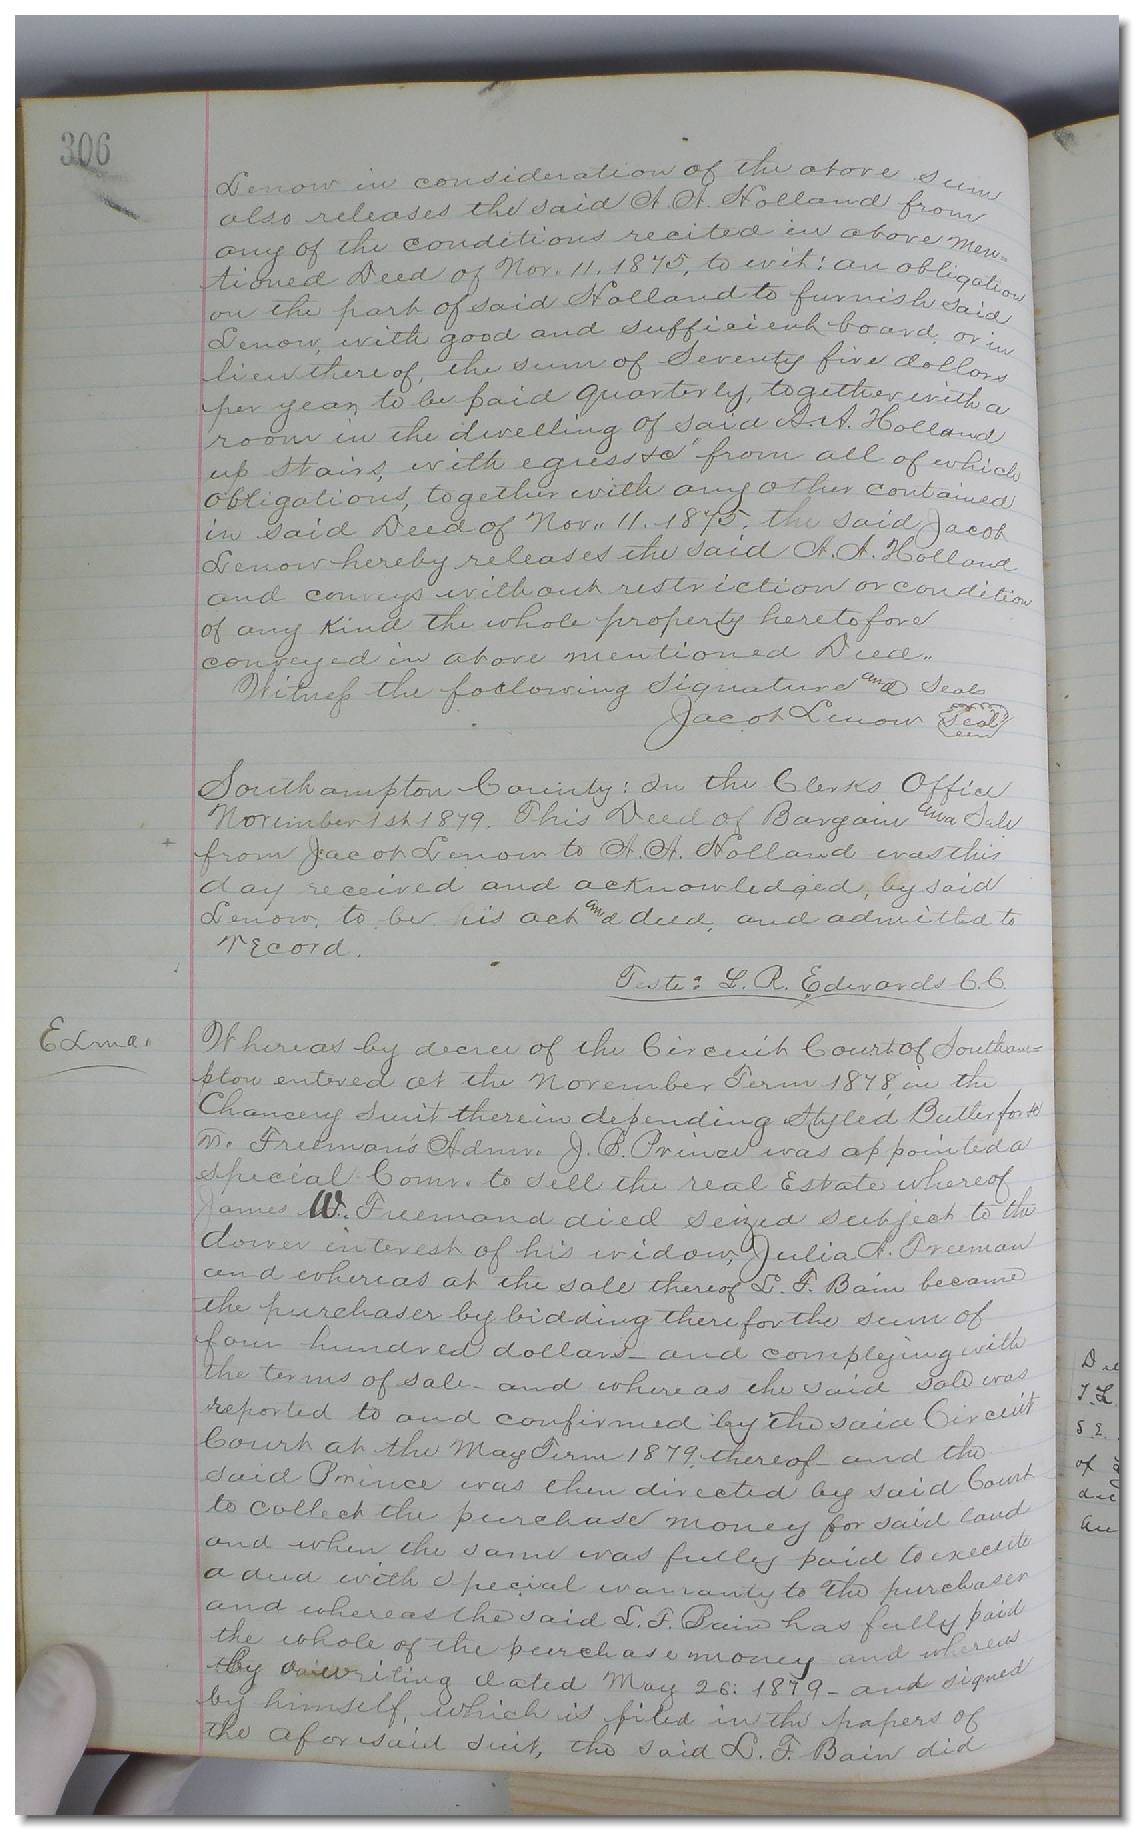 306
Lenow in consideration of the above sum
also releases the said A. A. Holland from
any of the conditions recited in above men-
tioned Deed of Nov. 11. 1875, to wit: an obligation
on the part of said Holland to furnish said
Lenow, with good and sufficient board, or in
lieu thereof, the sum of Seventy five dollars
per year, to be paid quarterly, together with a
room in the dwelling of said A. A. Holland
up stairs, with egress &c from all of which
obligations, together with any other contained
in said Deed of Nov. 11. 1875, the said Jacob
Lenow hereby releases the said A. A. Holland
and conveys without restriction or condition
of any kind the whole property heretofore
conveyed in above mentioned Deed.
Witness the following signature and seal
Jacob Lenow Seal
Southampton County: In the Clerks Office
November 1st 1879. This Deed of Bargain and Sale
from Jacob Lenow to A. A. Holland was this
day received and acknowledged, by said
Lenow, to be his act and deed, and admitted to
record.
Teste: L. R. Edwards C. C.
Exma.
Whereas by decree of the Circuit Court of Southam-
pton entered at the November Term 1878, in the
Chancery suit therein depending styled Butler for &c
vs. Freeman's Admr. J. B. Prince was appointed a
special Comr. to sell the real Estate whereof
James W. Freemand died seized subject to the
dower interest of his widow, Julia A. Freeman
and whereas at the sale thereof L. F. Bain became
the purchaser by bidding there for the sum of
four hundred dollars - and complying with
the terms of sale - and whereas the said sale was
reported to and confirmed by the said Circuit
Court at the May Term 1879. thereof and the
said Prince was then directed by said Court
to collect the purchase money for said land
and when the same was fully paid to execute
a deed with special warranty to the purchaser
and whereas the said L. F. Bain has fully paid
the whole of the purchase money and whereas
by writing dated May 26: 1879 - and signed
by himself, which is filed in the papers of
the aforesaid suit, the said L. F. Bain did